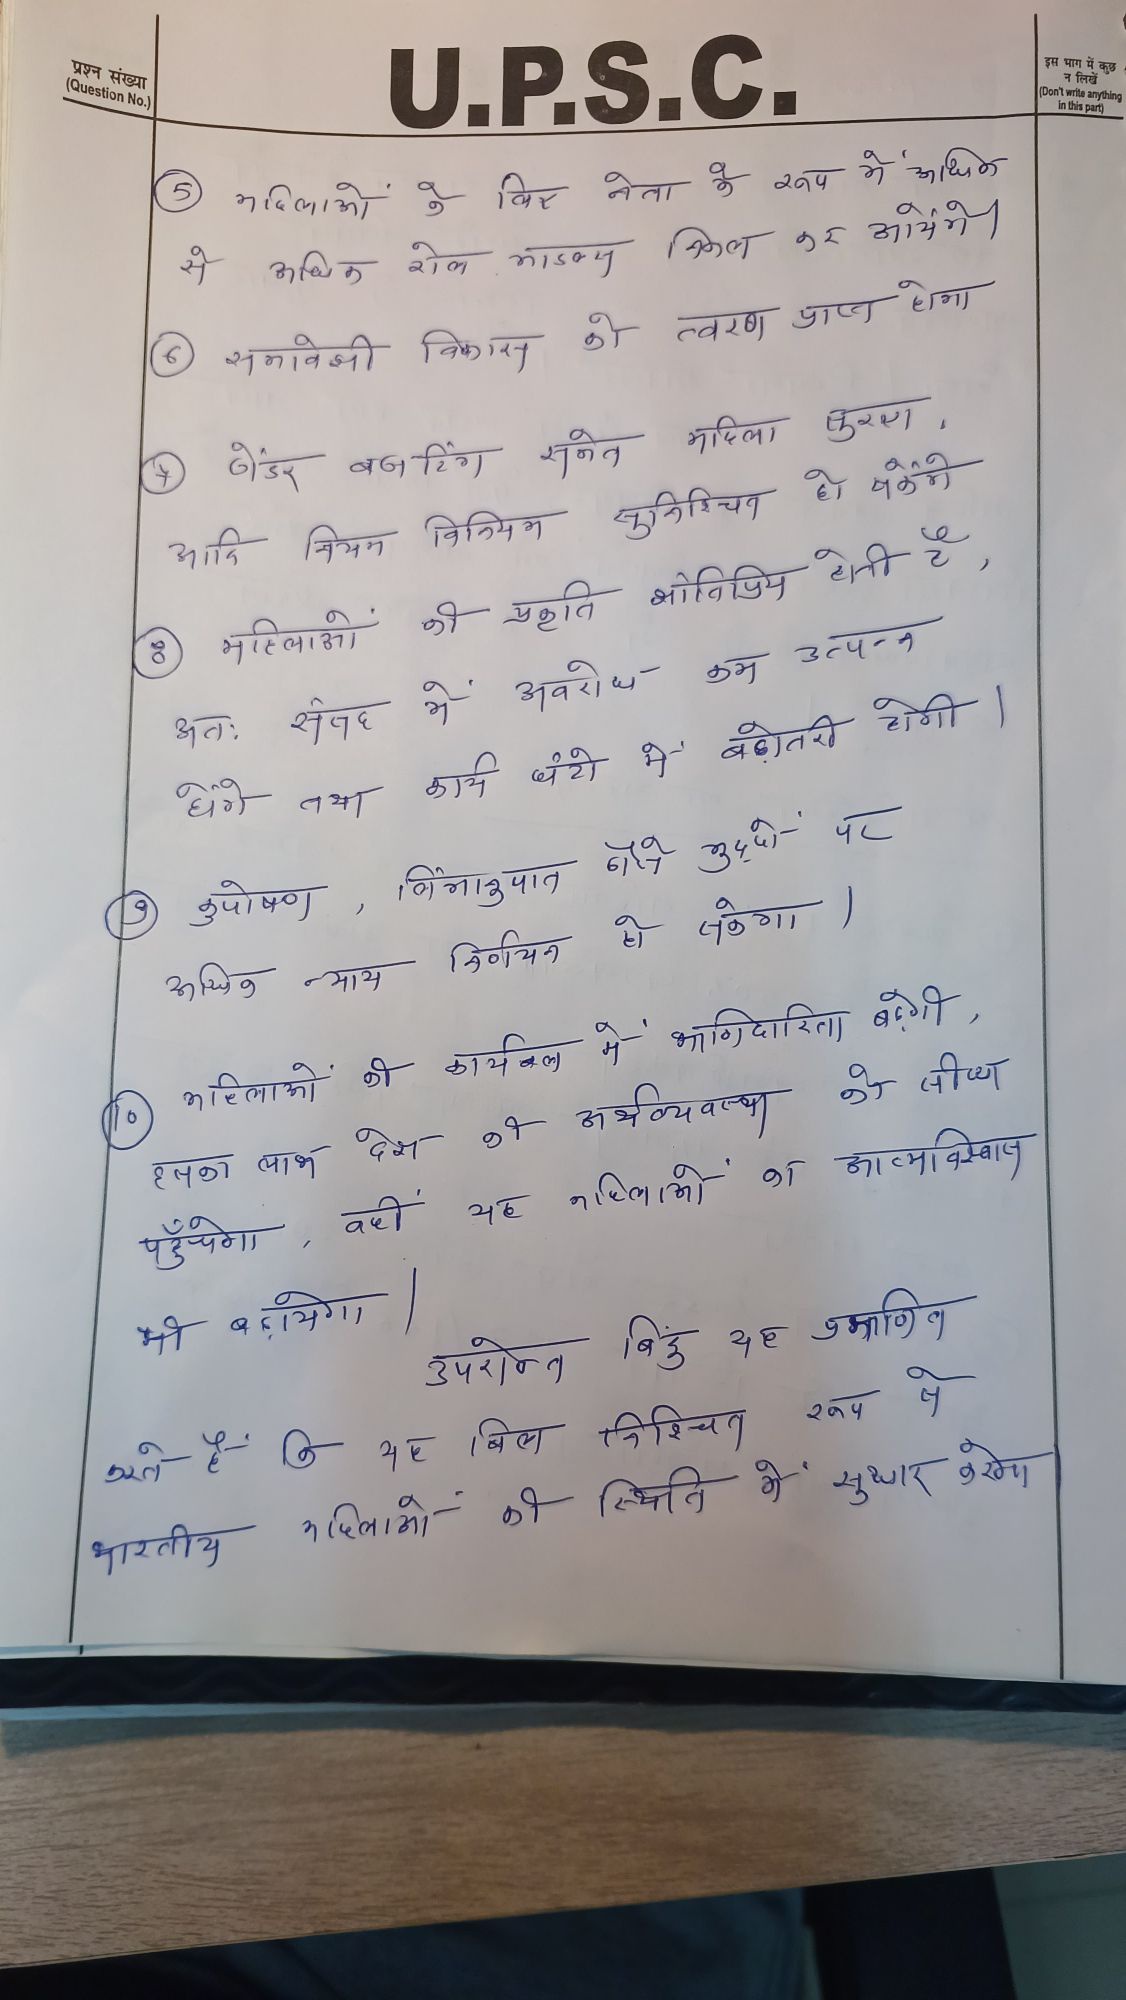 प्रश्न संख्या
(Question No.)
U.P.S.C.
इस भाग में कुछ
न लिखें
(Don't write anything
in this part)
5 महिलाओं के लिए नेता के रूप में अधिक
से अधिक रोल माडल्स निकल कर आयेंगे।
6 समावेशी विकास को त्वरण प्राप्त होगा
7 जेंडर बजटिंग समेत महिला सुरक्षा,
आदि नियम विनियम सुनिश्चित हो सकेंगे
8 महिलाओं की प्रकृति शांतिप्रिय होती है,
अतः संसद में अवरोध कम उत्पन्न
होंगे तथा कार्य घंटो में बढ़ोतरी होगी।
9 कुपोषण, लिंगानुपात जैसे मुद्दों पर
अधिक न्याय निर्णयन हो सकेगा।
10 महिलाओं की कार्यबल में भागिदारिता बढ़ेगी,
इसका लाभ देश की अर्थव्यवस्था को सीधा
पहुँचेगा, वहीं यह महिलाओं का आत्मविश्वास
भी बढ़ायेगा।
उपरोक्त बिंदु यह प्रमाणित
करते हैं कि यह बिल निश्चित रूप से
भारतीय महिलाओं की स्थिति में सुधार करेगा